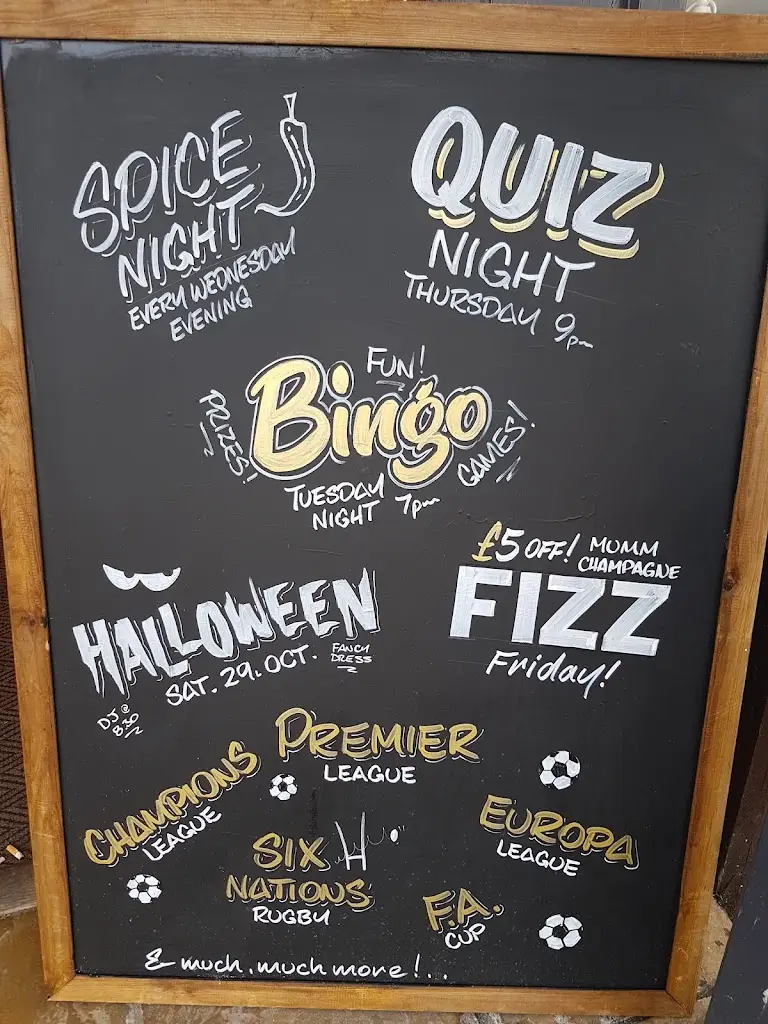 SPICE
NIGHT
EVERY WEDNESDAY
EVENING
QUIZ
NIGHT
THURSDAY 9pm
FUN!
PRIZES!
Bingo
GAMES!
TUESDAY
NIGHT 7pm
HALLOWEEN
SAT. 29. OCT.
FANCY
DRESS
DJ @
8.30
£5 OFF! MUMM
CHAMPAGNE
FIZZ
Friday!
PREMIER
LEAGUE
CHAMPIONS
LEAGUE
EUROPA
LEAGUE
SIX
NATIONS
RUGBY
F.A.
CUP
& much, much more!..